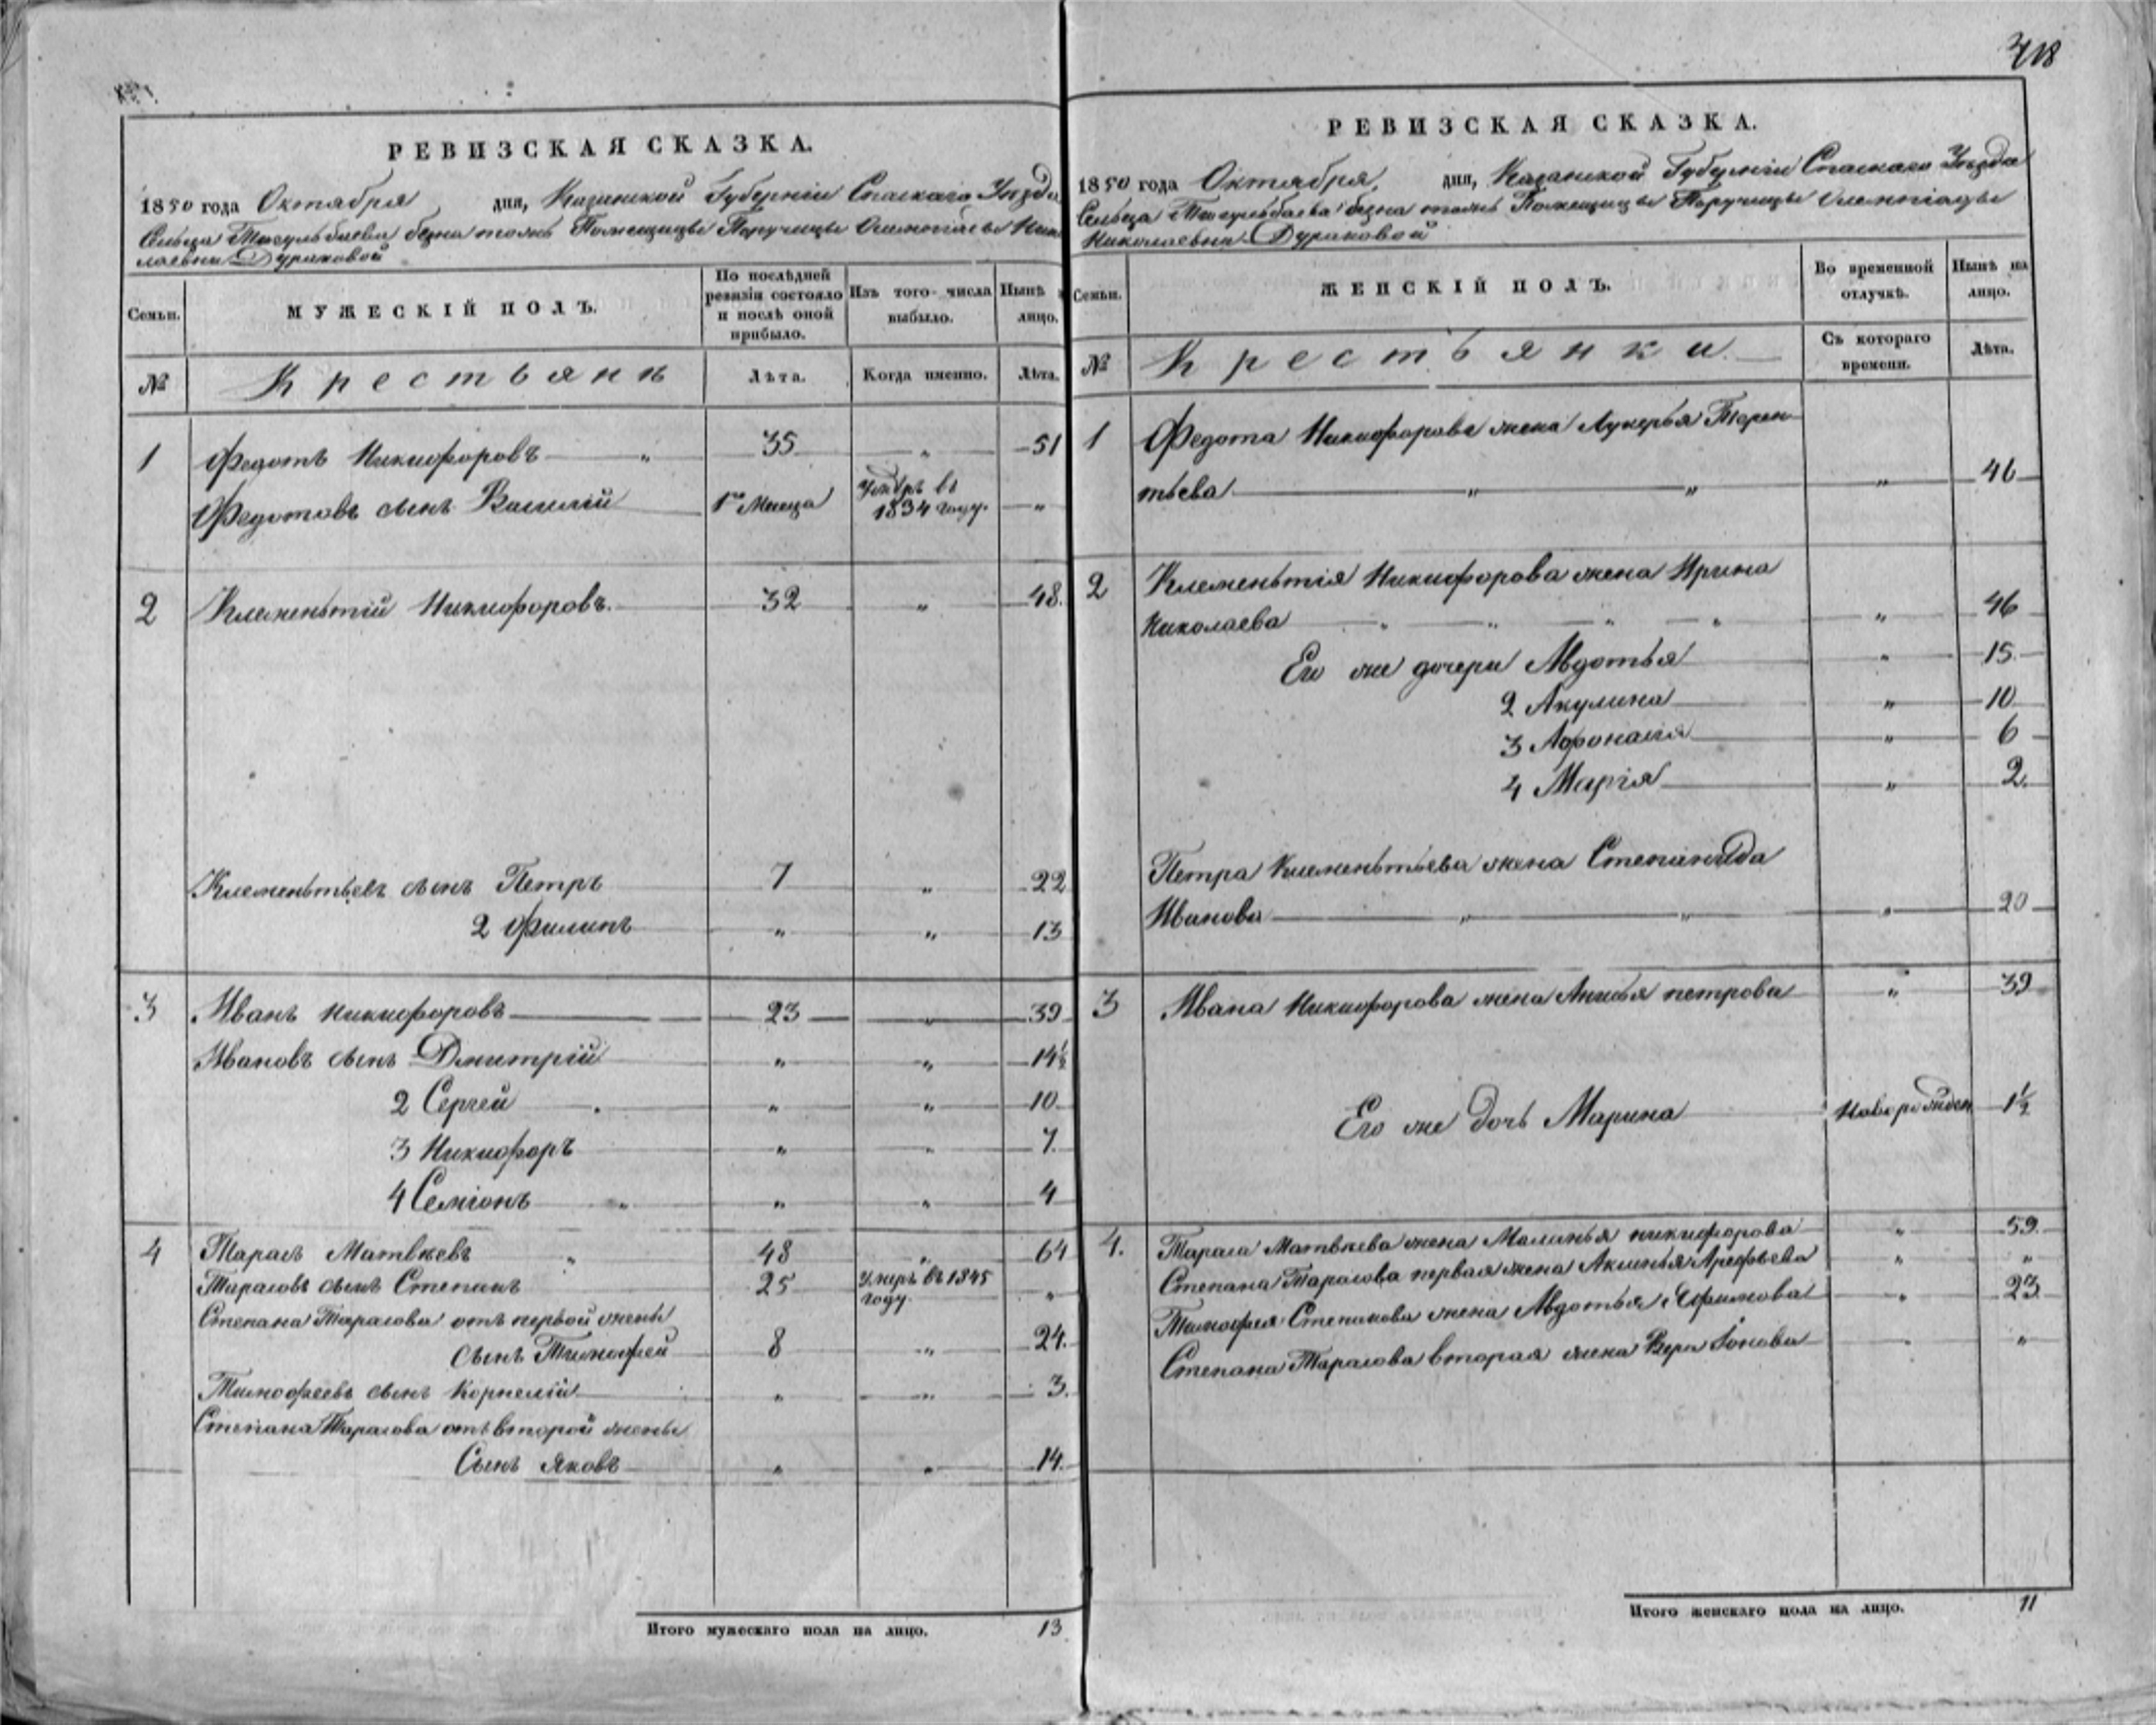 РЕВИЗСКАЯ СКАЗКА.
1850 года Октября дня, Казанской Губернiи Спаскаго Уѣзда
Сельца Тимуль баева тожъ Помещицы Поручицы Нико
лаевны Дураковой
Семьи.
МУЖЕСКIЙ ПОЛЪ.
По послѣдней
ревизiи состояло
и послѣ оной
прибыло.
Изъ того числа
выбыло.
Нынѣ
лицо.
№
Крестьянѣ
Лѣта.
Когда именно.
Лѣта.
1 Федотъ Никифоровъ " 35 " 51
Федотовъ сынъ Василiй 1го Месеца Умеръ въ 1834 году. "
2 Клеменьтiй Никифоровъ. 32 " 48.
Клеменьтьевъ сынъ Петръ 7 " 22
2 Филипъ " " 13
3 Иванъ никифоровъ 23 " 39
Ивановъ сынъ Дмитрiй " " 14½
2 Сергей " " 10
3 Никифоръ " " 7.
4 Семiонъ " " " 4
4 Тарасъ Матвѣевъ " 48 " 64
Тарасовъ сынъ Степанъ 25 Умеръ въ 1845 году. "
Степана Тарасова отъ первой жены
сынъ Тимофей 8 " 24.
Тимофеевъ сынъ Корнелiй " " 3.
Степана Тарасова отъ второй жены
Сынъ Яковъ " " 14.
Итого мужескаго пола на лицо. 13
РЕВИЗСКАЯ СКАЗКА.
1850 года Октября, дня, Казанской Губернiи Спаскаго Уѣзда
Сельца тожъ Помещицы Поручицы Олемпiады
Николаевны Дураковой
Семьи.
ЖЕНСКIЙ ПОЛЪ.
Во временной
отлучкѣ.
Нынѣ на
лицо.
№
Крестьянки.
Съ котораго
времени.
Лѣта.
1 Федота Никифорова жена Лукерья Терен
тьева " " " 46
2 Клеменьтiя Никифорова жена Ирина
Николаева " " " " " 46
Его же дочери Авдотья " 15.
2 Акулина " 10
3 Афонасiя " 6
4 Марiя " 2.
Петра Клеменьтьева жена Степанида
Иванова " " " 20
3 Ивана Никифорова жена Анисья петрова " 39
Его же дочь Марина новорожден 1½
4. Тараса Матвѣева жена Маланья никифорова " 59.
Степана Тарасова первая жена Аксинья Арефьева " "
Тимофея Степанова жена Авдотья Ефимова " 23.
Степана Тарасова вторая жена Вера Iонова " "
Итого женскаго пола на лицо. 11